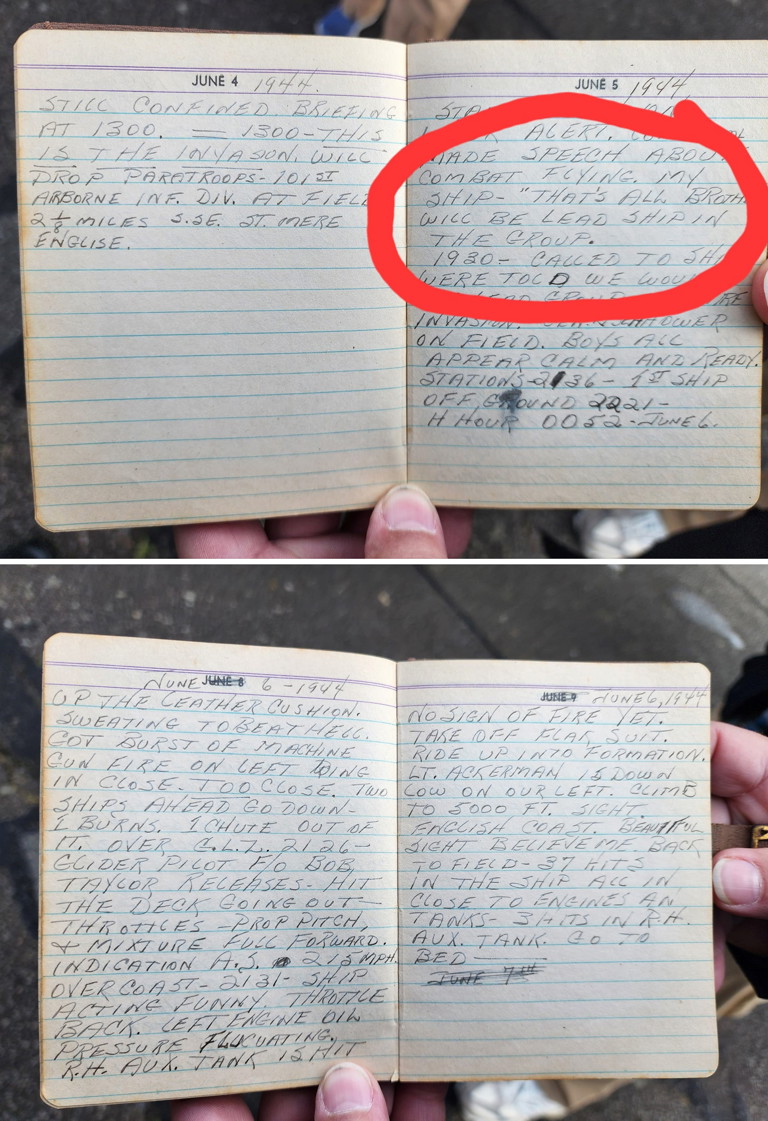 JUNE 4 1944.
STILL CONFINED BRIEFING
AT 1300. — 1300-THIS
IS THE INVASON. WILL
DROP PARATROOPS-101ST
AIRBORNE INF. DIV. AT FIELD
2 1/8 MILES S.SE. ST. MERE
ENGLISE.
JUNE 5 1944
ALERT.
MADE SPEECH ABOUT
COMBAT FLYING. MY
SHIP- "THAT'S ALL BROTH
WILL BE LEAD SHIP IN
THE GROUP.
1930- CALLED TO SH
WERE TOLD WE WOU
LEAD GROUP
INVASION.
ON FIELD. BOYS ALL
APPEAR CALM AND READY.
STATIONS-2136- 1ST SHIP
OFF GROUND 2221-
H HOUR 0052-JUNE 6.
JUNE JUNE 8 6-1944
UP THE LEATHER CUSHION.
SWEATING TO BEAT HELL.
GOT BURST OF MACHINE
GUN FIRE ON LEFT WING
IN CLOSE. TOO CLOSE. TWO
SHIPS AHEAD GO DOWN-
1 BURNS. 1 CHUTE OUT OF
IT. OVER G.L.Z. 2126-
GLIDER PILOT F/O BOB
TAYLOR RELEASES- HIT
THE DECK GOING OUT-
THROTTLES -PROP PITCH,
& MIXTURE FULL FORWARD.
INDICATION A.S. 215 MPH.
OVER COAST-2131- SHIP
ACTING FUNNY, THROTTLE
BACK. LEFT ENGINE OIL
PRESSURE FLUCUATING.
R.H. AUX. TANK IS HIT
JUNE 9 JUNE 6, 1944
NO SIGN OF FIRE YET.
TAKE OFF FLAK SUIT.
RIDE UP INTO FORMATION.
LT. ACKERMAN IS DOWN
LOW ON OUR LEFT. CLIMB
TO 5000 FT. SIGHT
ENGLISH COAST. BEAUTIFUL
SIGHT BELIEVE ME. BACK
TO FIELD-37 HITS
IN THE SHIP ALL IN
CLOSE TO ENGINES AN
TANKS- 3 HITS IN R.H.
AUX. TANK. GO TO
BED —
JUNE 7TH